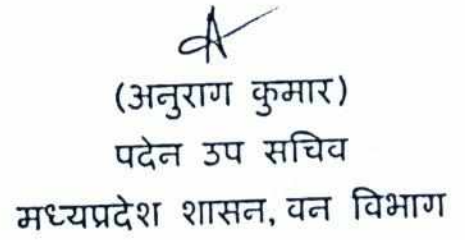 (अनुराग कुमार)
पदेन उप सचिव
मध्यप्रदेश शासन, वन विभाग